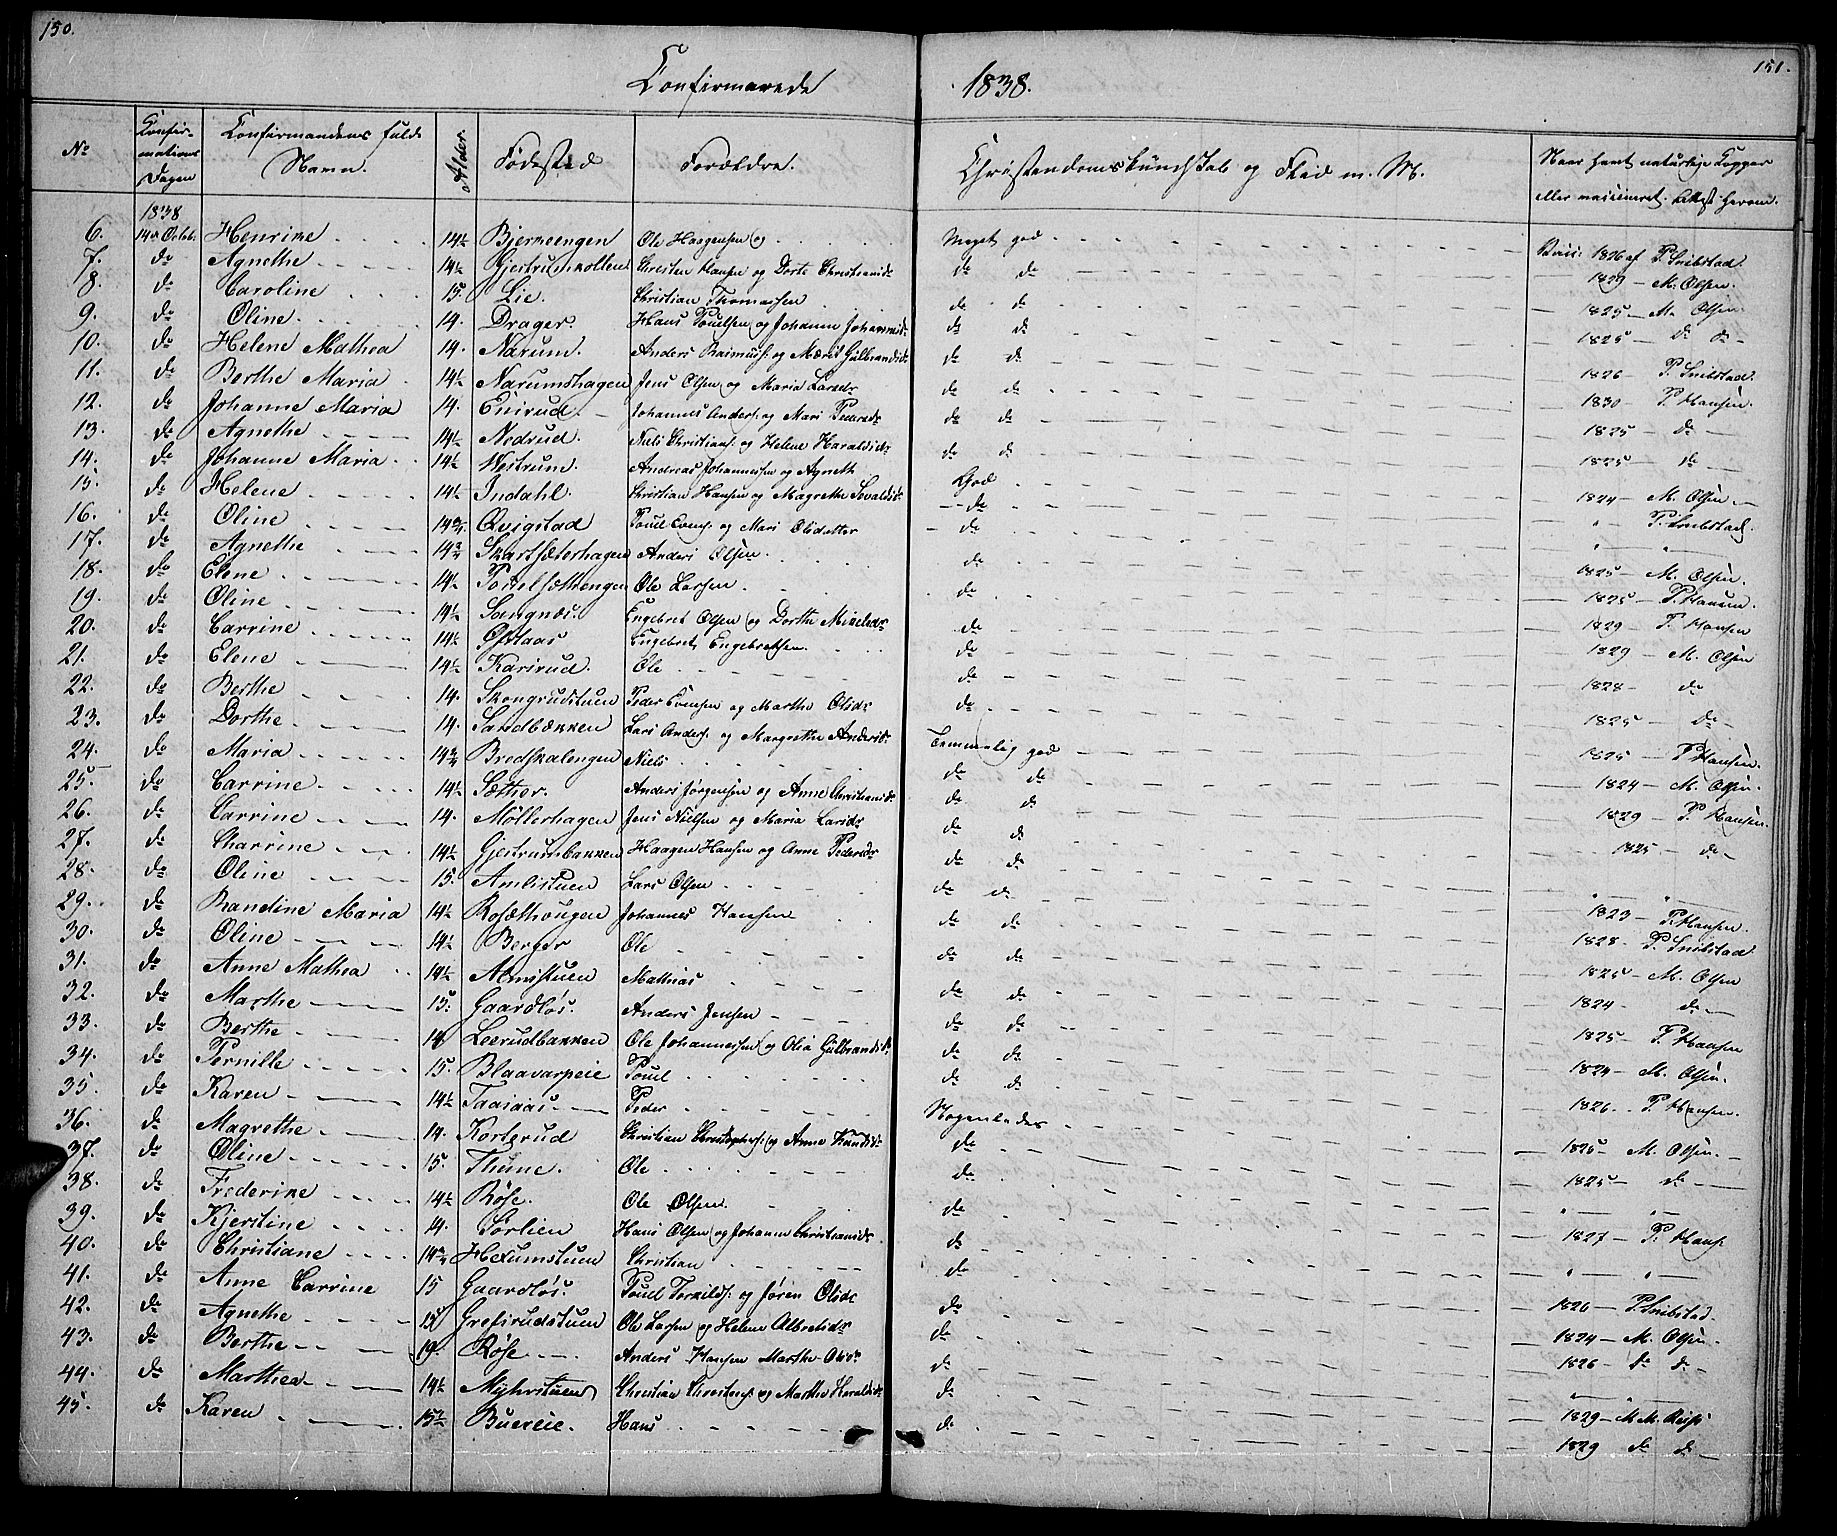 150.
151.
Confirmerede 1838.
No
Confir-
mations
Dagen
Confirmandens fulde
Navn.
Alder.
Fødested
Forældre.
Christendomskundskab og Flid m. M.
Naar havt naturlige Kopper
eller vaccineret. Attest herom.
1838
6. 14de Octob. Henrine 14½ Bjerkeengen Ole Haagensen og Meget god Vacc: 1826 af P. Snibstad.
7. do Agnethe 14½ Gjestrumkollen Christen Hansen og Dorte Christiansdr do do 1829 - M. Olsen.
8. do Caroline 15. Lie. Christian Thomassen do do 1825 - M. Olsen.
9. do Oline. 14. Drager. Hans Poulsen og Johanne Johannsdr do do 1825 - do do -
10. do Helene Mathea 14. Narum. Anders Rasmuss: og Marit Gulbrandsdr do do 1826 - P. Snibstad.
11. do Berthe Maria 14½ Narumshagen Jens Olsen og Maria Larsdr do do 1830 - P. Hansen.
12. do Johanne Maria 14. Enirud. Johannes Anders: og Mari Pedersdr do do 1825 - do -
13. do Agnethe 14½ Nedrud. Niels Christians: og Helene Haraldsdr do do 1825 - do
14. do Johanne Maria 14½ Westrum. Andreas Johannessen og Agneth God 1824 - M. Olsen. -
15. do Helene 14½ Indahl. Christian Hansen og Magrethe do " - P. Snibstad.
16. do Oline 14¾ Qvigstad Poul Evens: og Mari Olsdatter do " "
17. do Agnethe 14¾ Skartsæterhagen Anders Olsen. do 1825 - M. Olsen.
18. do Elene 14½ Ole Larsen. do 1825 - P. Hansen.
19. do Oline 14½ Sangnæs. Engebret Olsen og Dorthe Mikelsdr do 1829 - P. Hansen
20. do Carrine 14½ Østlaas Engebret Engebretsen. do 1829 - M. Olsen
21. do Elene 14½ Karirud. Ole do 1828 - do
22. do Berthe 14. Skongrudstuen Peder Evensen og Marthe Olsdr do 1825 - do -
23. do Dorthe 14. Sandbækken Lars Anders: og Margrethe Andersdr Temmelig god 1825 - P. Hansen.
24. do Maria 14¾ Bredskalengen Niels do do 1824 - M. Olsen.
25. do Carrine 14½ Sætter. Anders Jørgensen og Anne Christiansdr do do 1829 - P. Hansen.
26. do Carrine 14. Møllerhagen Jens Nielsen og Maria Larsdr do do 1825 - do -
27. do Charrine 14½ Gjestrumbakken Haagen Hansen og Anne Pedersdr do do " "
28. do Oline 15. Amlistuen Lars Olsen do do 1823 - P. Hansen.
29. do Randine Maria 14½ Johannes Hansen do do 1828 - P. Snibstad
30. do Oline 14½ Berger Ole do do 1825 - M. Olsen
31. do Anne Mathea 14½ Almistuen Mathias do do 1824 - do -
32. do Marthe 15. Gaardløs. Anders Jensen do do 1825 - P. Hansen
33. do Berthe 14 Leerudbakken Ole Johannessen og Olia Gulbrandsdr do do 1824 - M. Olsen.
34. do Pernille 15. Blaavarpeie Poul do do 1826. - P. Hansen.
35. do Karen 14½ Taasaas Peder Nogenledes 1825 - M. Olsen. -
36. do Magrethe 14. Korterud Christian Christophers: og Anne Knudsdr do 1825 - do -
37. do Oline 15. Thune. Ole do " - " -
38. do Frederike 14½ Røse. Ole Olsen. do 1827 - P. Hans:
39. do Kjerstine 14. Sørlien Hans Olsen og Johanne Christiansdr do " "
40. do Christiane 14¾ Hexumstuen Christian do 1820 - P. Snibstad.
41. do Anne Carrine 15 Gaardløs. Poul Torkilds: og Jøren Olsdr do 1824 - M. Olsen.
42. do Agnethe 15 Grefsrudstuen Ole Larsen og Helene Albretsdr do 1826 - do do -
43. do Berthe 19. Røse Anders Hansen Marthe Olsdr do
44. do Marthea 14½ Myhrstuen Christian Christens: og Marthe Haraldsdr do 1829 - M. M.
45. do Karen 15½ Buereie. Hans do 1829 do do -